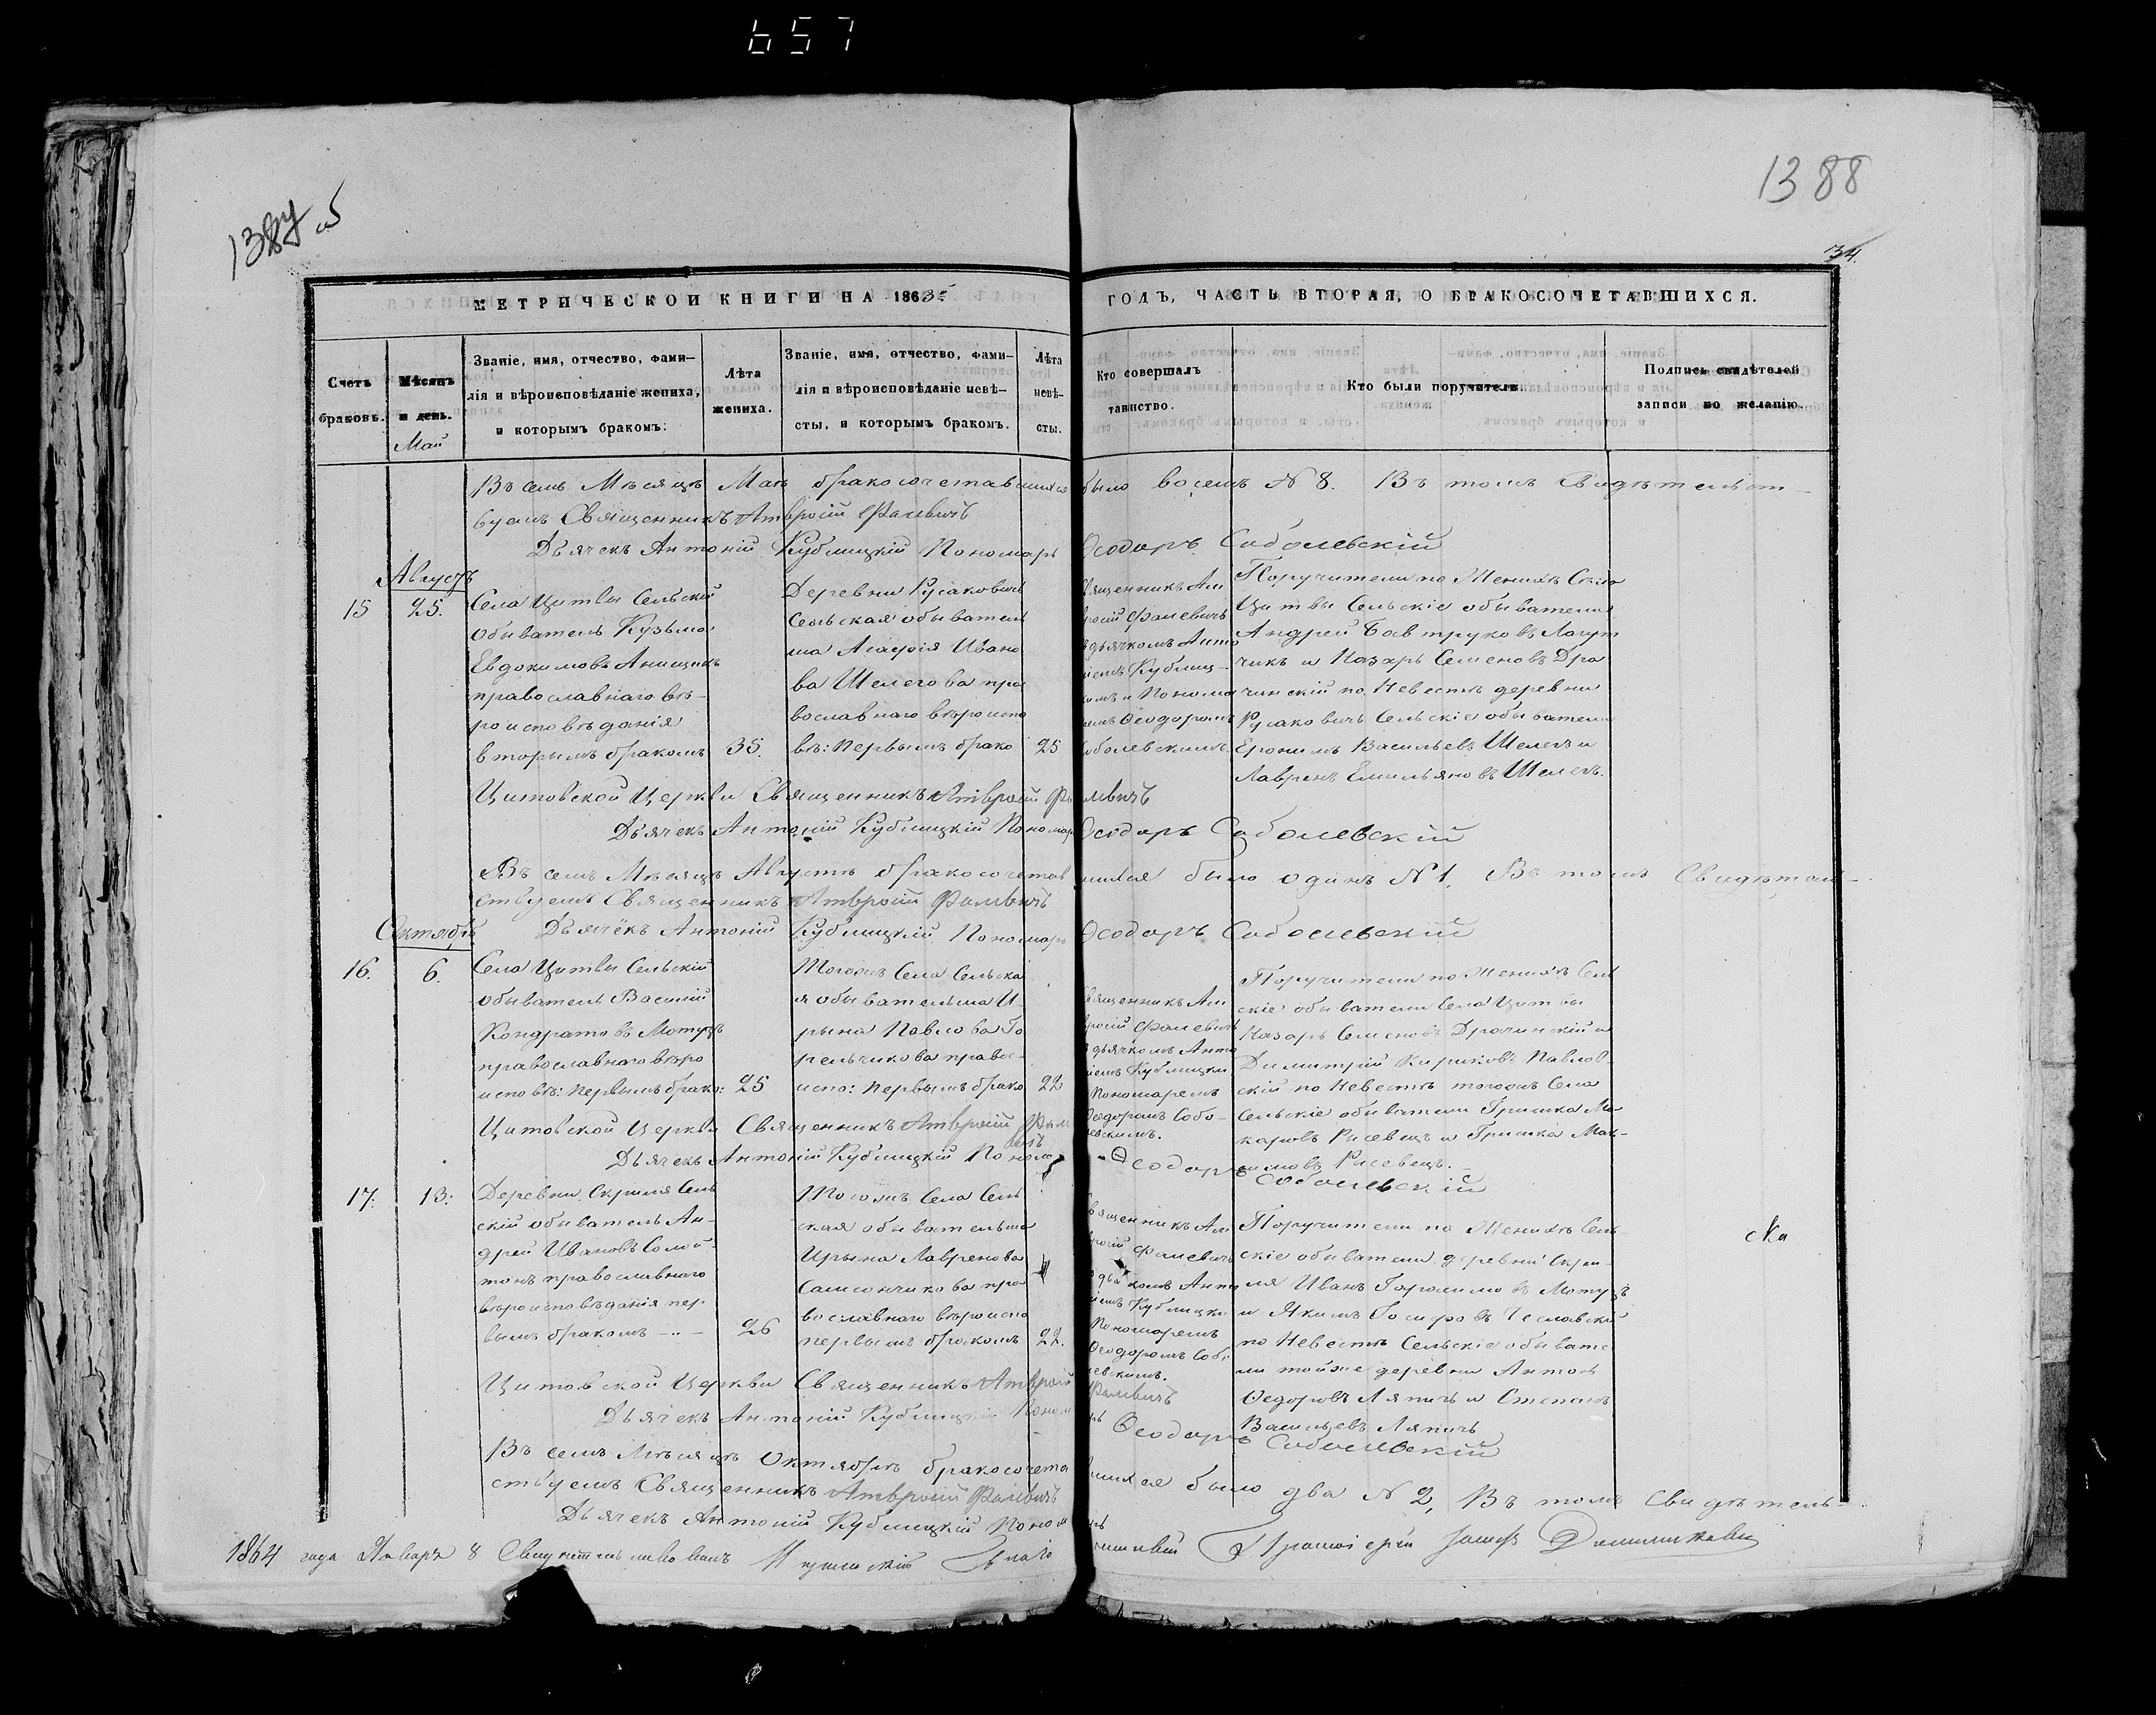 657
1388
34.
МЕТРИЧЕСКОЙ КНИГИ НА 1863 ГОДЪ, ЧАСТЬ ВТОРАЯ, О БРАКОСОЧЕТАВШИХСЯ.
Счетъ браковъ.
Мѣсяцъ и день.
Май
Званіе, имя, отчество, фами-
лія и вѣроисповѣданіе жениха,
и которымъ бракомъ.
Лѣта жениха.
Званіе, имя, отчество, фами-
лія и вѣроисповѣданіе невѣ-
сты, и которымъ бракомъ.
Лѣта невѣ-
сты.
Кто совершалъ
таинство.
Кто были поручители.
Подпись свидѣтелей
записи по желанію.
Въ семъ Мѣсяцѣ Маѣ бракосочетавшихся было восемь N 8. Въ томъ Свидѣтельст-
вуемъ Священникъ Амвросій Фалевичъ
Дьячекъ Антоній Кублицкій Пономарь Ѳеодоръ Соболевскій
Августъ
15
25.
Села Цитвы Сельскій
обыватель Кузьма
Евдокимовъ Анищикъ
православнаго вѣ-
роисповѣданія
вторымъ бракомъ
35.
Деревни Русаковичъ
Сельская обыватель
ша Агафія Ивано
ва Шелегова пра
вославнаго вѣроиспо
вѣ: Первымъ брако
25
Священникъ Ам
вросій Фалевичъ
съ дьячкомъ Анто
ніемъ Кублиц-
кимъ и Понома
ремъ Ѳеодоромъ
Соболевскимъ
Поручители по Женихѣ Села
Цитвы Сельскіе обыватели
Андрей Бавтруковъ Лагут
чикъ и Назаръ Семеновъ Дра
чинскій по Невестѣ деревни
Русаковичъ Сельскіе обыватели
Еронимъ Васильевъ Шелегъ и
Лавренъ Емильяновъ Шелегъ.
Цитовской Церкви Священникъ Амвросій Фалевичъ
Дьячекъ Антоній Кублицкій Пономарь Ѳеодоръ Соболевскій
Въ семъ Мѣсяцѣ Августѣ бракосочетавшихся было одинъ N 1. Въ томъ Свидѣтель-
ствуемъ Священникъ Амвросій Фалевичъ
Дьячекъ Антоній Кублицкій Пономарь Ѳеодоръ Соболевскій
Октябрь
16.
6.
Села Цитвы Сельскій
обыватель Василій
Кондратовъ Мотузъ
православнаго вѣро
исповѣ: Первымъ брако:
25
Тогожъ Села Сельска
я обывательша И-
рына Павлова Го
рельчикова право-
испо: Первымъ брако
22
Священникъ Ам
вросій Фалевичъ
съ дьячкомъ Анто
ніемъ Кублицки
Пономаремъ
Ѳеодоромъ Собо-
левскимъ.
Поручители по Женихѣ Сель
скіе обыватели Села Цитвы
Назаръ Семеновъ Драчинскій и
Димитрій Кириковъ Павлов-
скій по Невестѣ тогожъ Села
Сельскіе обыватели Гришка Ма-
каровъ Рисевецъ и Гришка Мак-
симовъ Рисевецъ.
Цитовской Церкви Священникъ Амвросій Фалевичъ
Дьячекъ Антоній Кублицкій Пономарь Ѳеодоръ Соболевскій
17.
13.
Деревни Скрыля Сель
скій обыватель Ан-
дрей Ивановъ Солой-
православнаго
вѣроисповѣданія пер
вымъ бракомъ
26
Тогожъ Села Сель
ская обывательша
Ирына Лавренова
Самсончикова пра
вославнаго вѣроиспо
первымъ бракомъ
22.
Священникъ Ам
вросій Фалевичъ
съ дьячкомъ Анто
ніемъ Кублицки
Пономаремъ
Ѳеодоромъ Собо
левскимъ.
Поручители по Женихѣ Сель-
скіе обыватели деревни Скры-
ля Иванъ Мотузъ
и Якимъ
по Невестѣ Сельскіе обывате
ли тойже деревни Антонъ
Ѳедоровъ Ляпичъ и Степанъ
Васильевъ Ляпичъ
Цитовской Церкви Священникъ Амвросій Фалевичъ
Дьячекъ Антоній Кублицкій Пономарь Ѳеодоръ Соболевскій
Въ семъ Мѣсяцѣ Октябрѣ бракосочетавшихся было два N 2, Въ томъ Свидѣтель-
ствуемъ Священникъ Амвросій Фалевичъ
Дьячекъ Антоній Кублицкій Пономарь
1864 года Января 8 Свидѣтельствовалъ